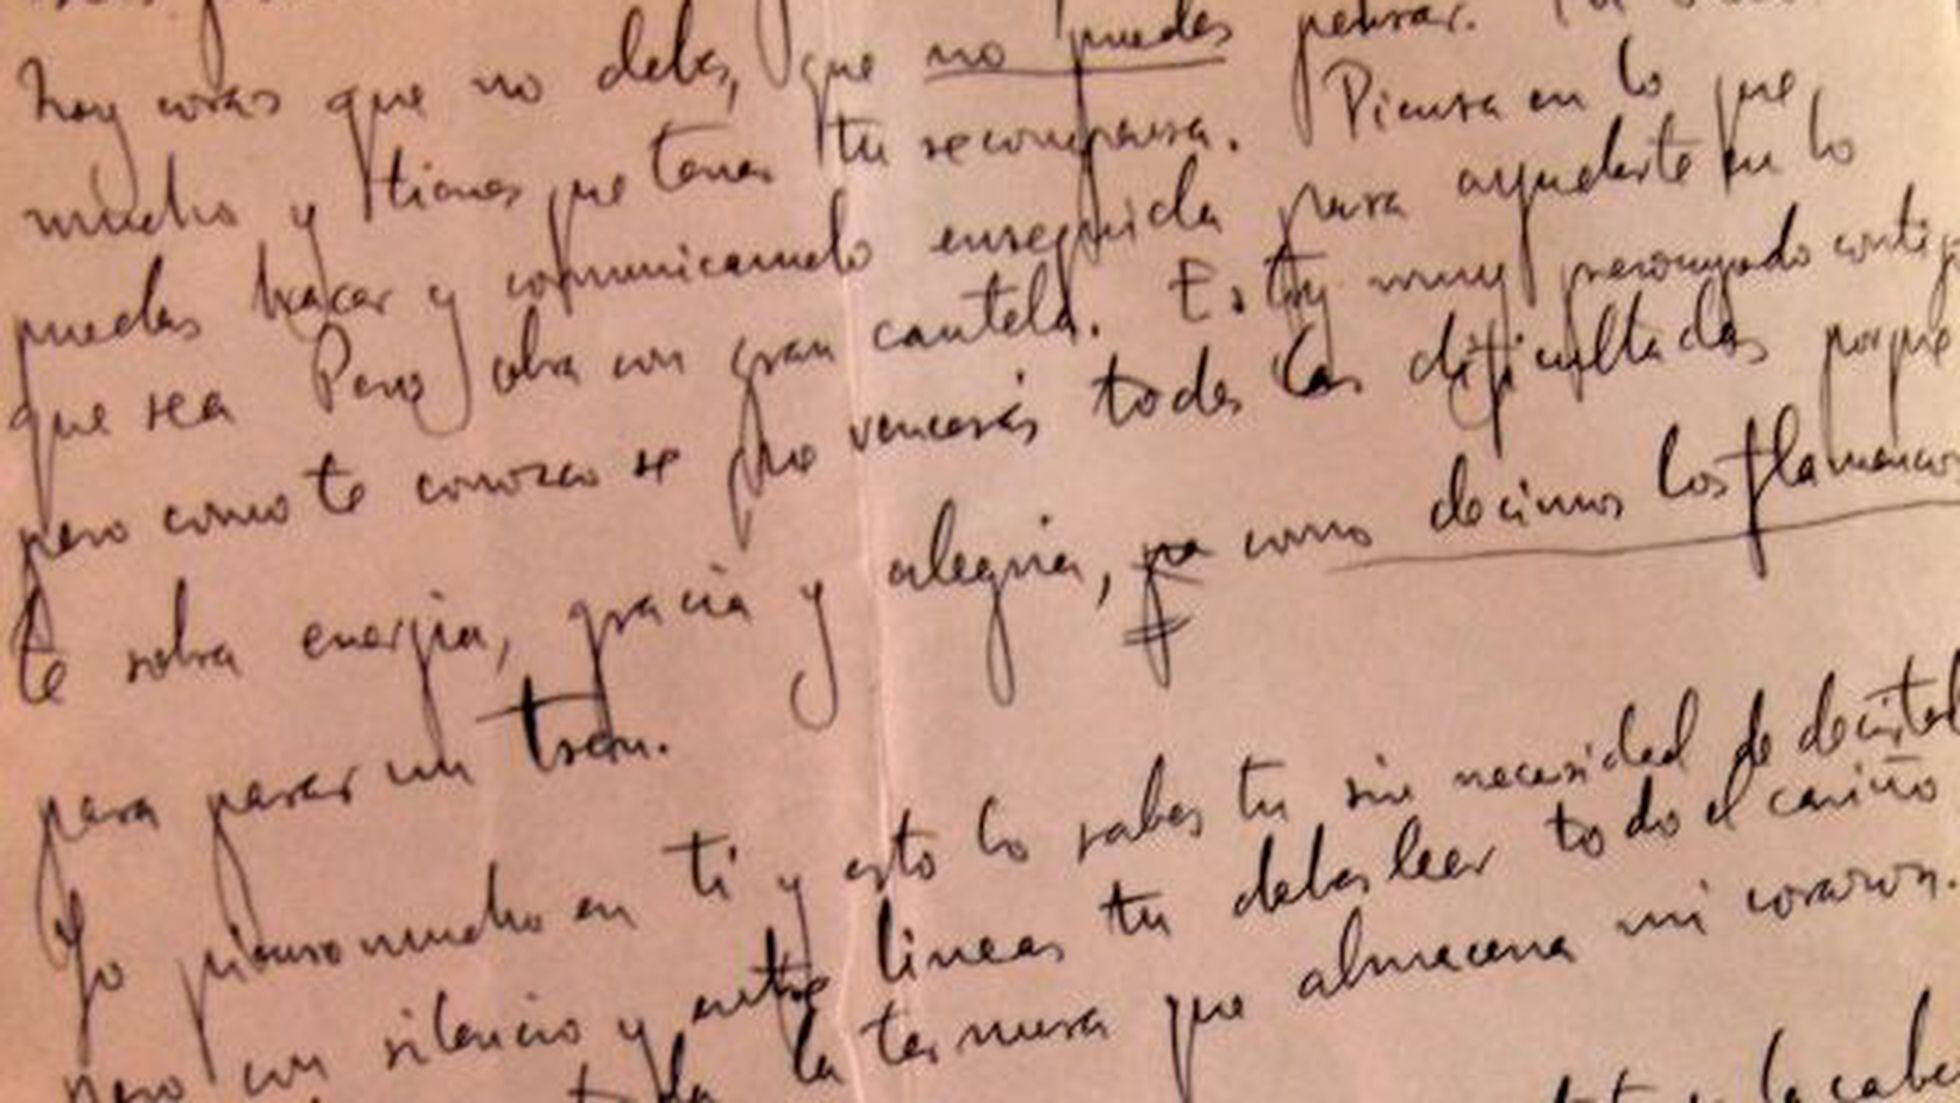 hay cosas que no debes, que no puedes pensar. Tu
mucho y tienes que tener tu recompensa. Piensa en lo que
puedas hacer y comunicamelo enseguida para ayudarte en lo
que sea Pero obra con gran cautela. Estoy muy preocupado contigo
pero como te conozco se que vencerás todas las dificultades porque
te sobra energia, gracia y alegria, ya como decimos los flamencos
para parar un tren.
Yo pienso mucho en ti y esto lo sabes tu sin necesidad de decirtel
pero con silencio y entre lineas tu debes leer todo el cariño
toda la ternura que almacena mi corazon.
la cabe